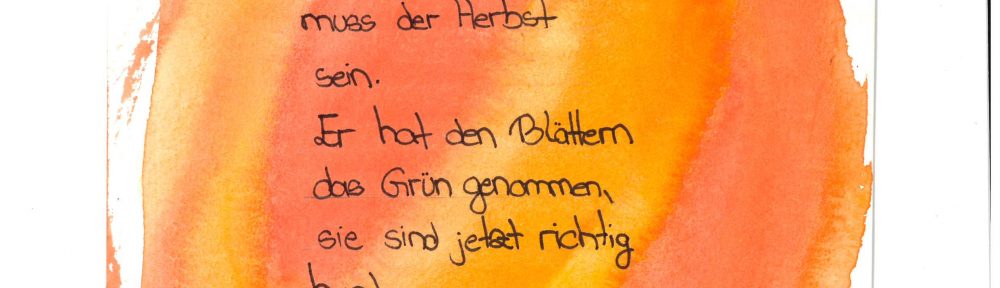 muss der Herbst
sein.
Er hat den Blättern
das Grün genommen,
sie sind jetzt richtig